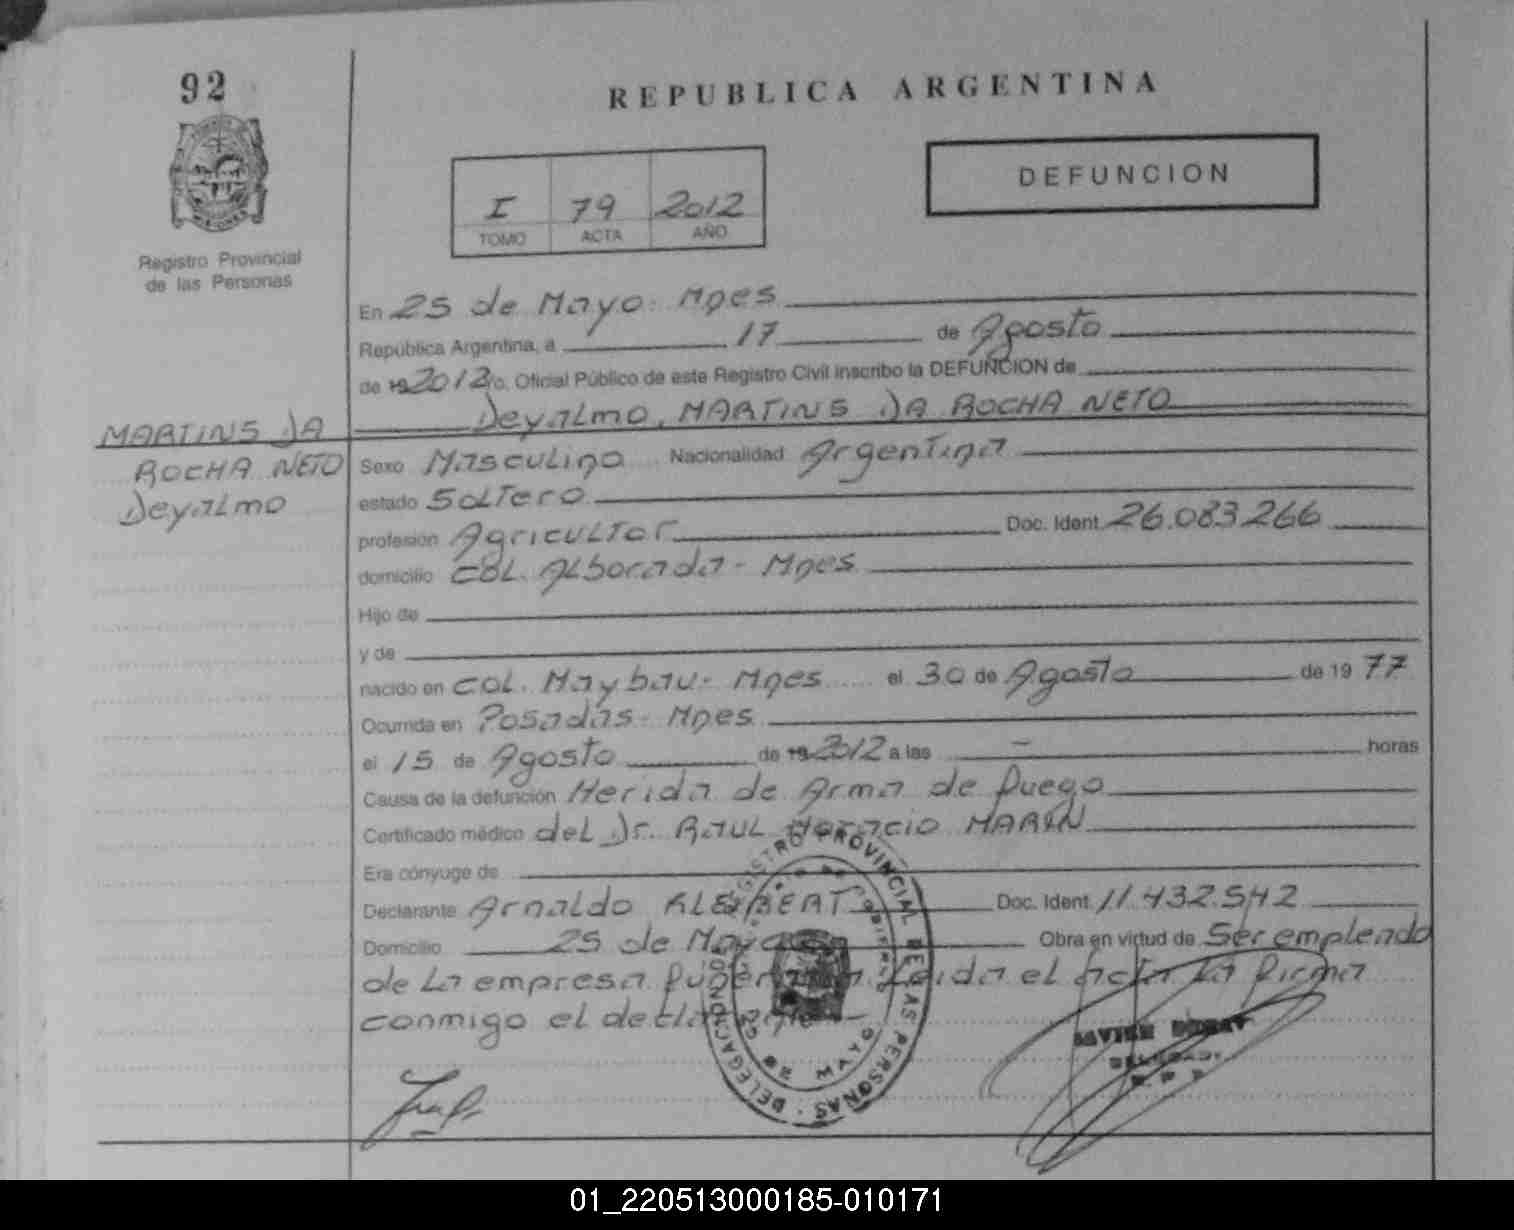 92
REPUBLICA ARGENTINA
DEFUNCION
I 79 2012
TOMO ACTA AÑO
Registro Provincial
de las Personas
En 25 de Mayo - Mnes
República Argentina, a 17 de Agosto
de 19 2012 yo, Oficial Público de este Registro Civil inscribo la DEFUNCION de
Deyalmo, MARTINS DA ROCHA NETO
MARTINS DA
ROCHA NETO
Deyalmo
Sexo Masculino Nacionalidad Argentina
estado Soltero
profesión Agricultor Doc. Ident. 26.083.266
domicilio COL. Alborada - Mnes
Hijo de
y de
nacido en COL. Maybau - Mnes el 30 de Agosto de 1977
Ocurrida en Posadas - Mnes
el 15 de Agosto de 19 2012 a las - horas
Causa de la defunción Herida de Arma de fuego
Certificado médico del Dr. RAUL Horacio MARIN
Era cónyuge de
Declarante Arnaldo KLEIBERT Doc. Ident. 11.432.542
Domicilio 25 de Mayo Obra en virtud de Ser empleado
de la empresa funeraria. Leida el acta la firma
conmigo el declarante -
REGISTRO PROVINCIAL DE LAS PERSONAS - DELEGACION
25 DE MAYO
01_220513000185-010171